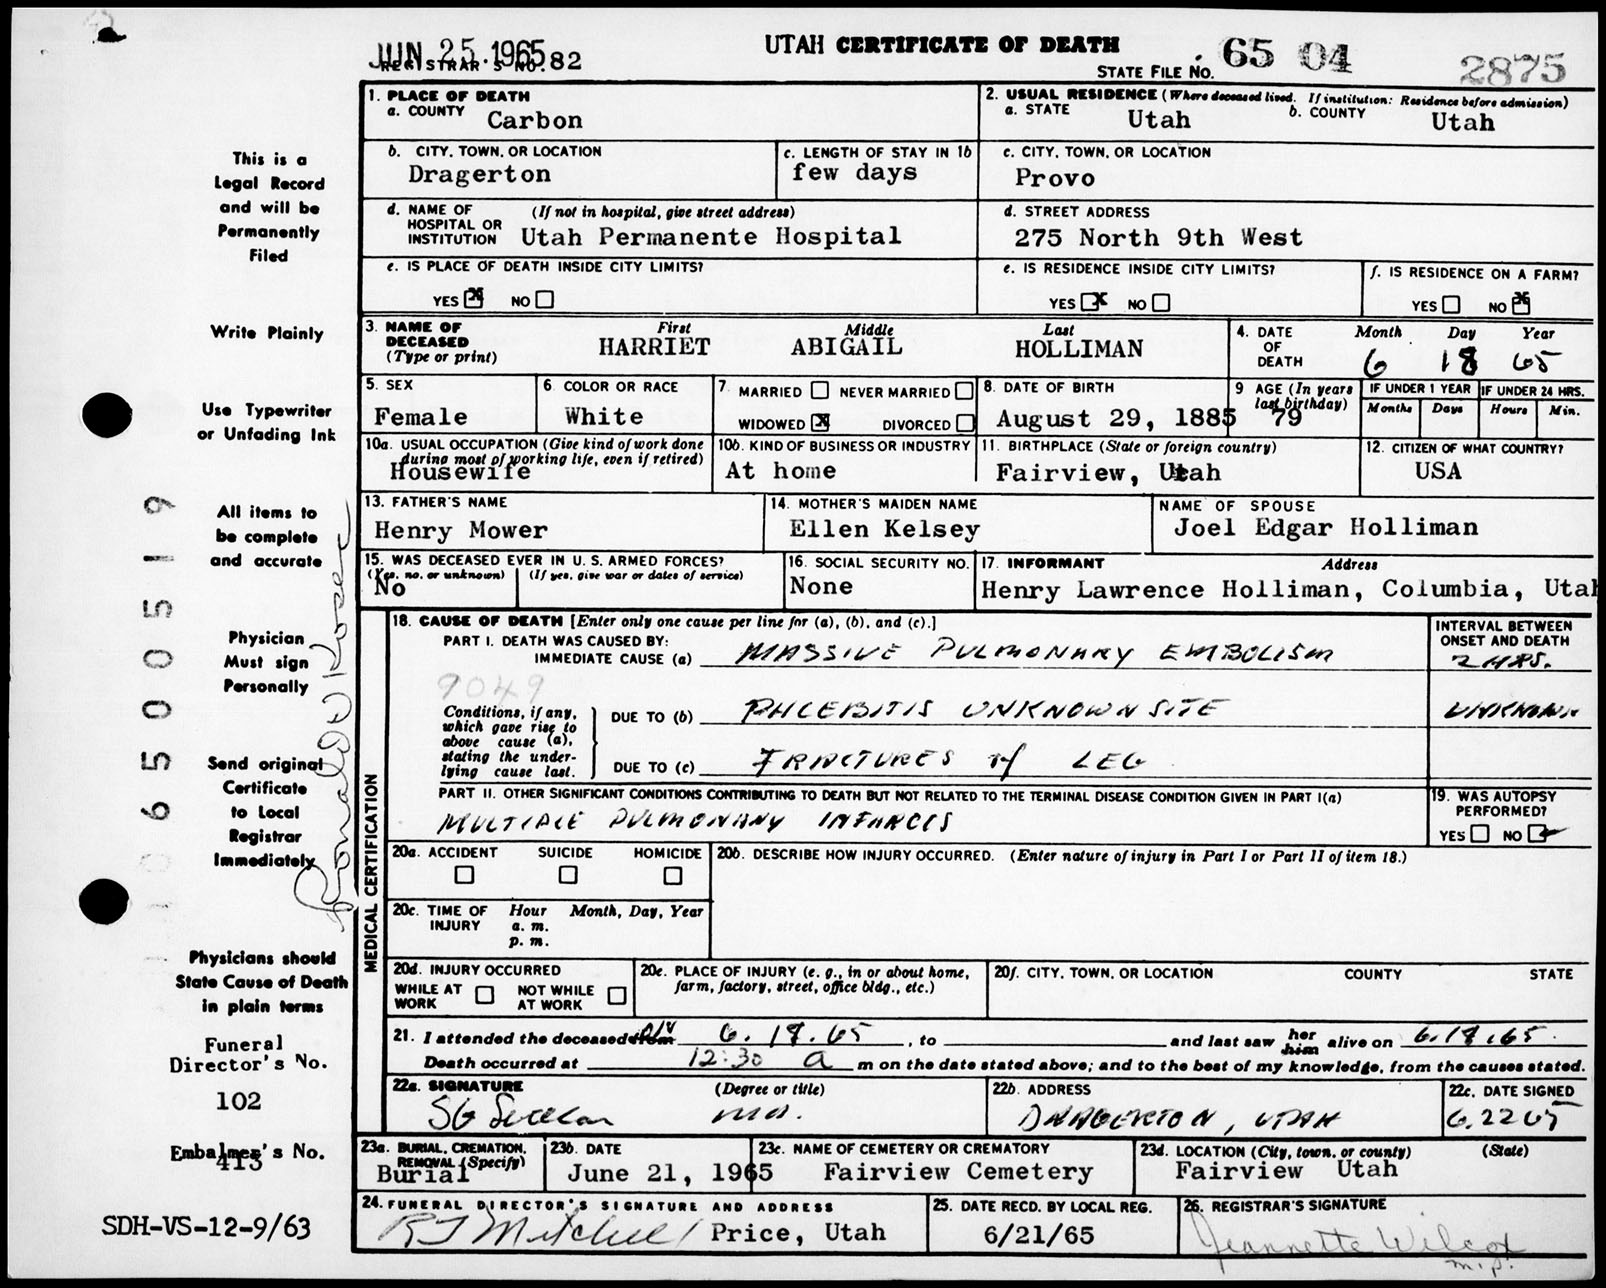 JUN 25 1965
REGISTRAR'S NO. 82
UTAH CERTIFICATE OF DEATH
STATE FILE NO. 65 04 2875
This is a
Legal Record
and will be
Permanently
Filed
Write Plainly
Use Typewriter
or Unfading Ink
All items to
be complete
and accurate
Physician
Must sign
Personally
Send original
Certificate
to Local
Registrar
Immediately
Physicians should
State Cause of Death
in plain terms
Funeral
Director's No.
102
Embalmer's No.
413
SDH-VS-12-9/63
0 6 5 0 0 5 1 9
1. PLACE OF DEATH
a. COUNTY Carbon
2. USUAL RESIDENCE (Where deceased lived. If institution: Residence before admission)
a. STATE Utah b. COUNTY Utah
b. CITY, TOWN, OR LOCATION
Dragerton
c. LENGTH OF STAY IN 1b
few days
c. CITY, TOWN, OR LOCATION
Provo
d. NAME OF HOSPITAL OR INSTITUTION (If not in hospital, give street address)
Utah Permanente Hospital
d. STREET ADDRESS
275 North 9th West
e. IS PLACE OF DEATH INSIDE CITY LIMITS?
YES X NO
e. IS RESIDENCE INSIDE CITY LIMITS?
YES X NO
f. IS RESIDENCE ON A FARM?
YES NO X
3. NAME OF DECEASED (Type or print)
First Middle Last
HARRIET ABIGAIL HOLLIMAN
4. DATE OF DEATH Month Day Year
6 18 65
5. SEX
Female
6. COLOR OR RACE
White
7. MARRIED NEVER MARRIED
WIDOWED X DIVORCED
8. DATE OF BIRTH
August 29, 1885
9 AGE (In years last birthday)
79
IF UNDER 1 YEAR
Months Days
IF UNDER 24 HRS.
Hours Min.
10a. USUAL OCCUPATION (Give kind of work done during most of working life, even if retired)
Housewife
10b. KIND OF BUSINESS OR INDUSTRY
At home
11. BIRTHPLACE (State or foreign country)
Fairview, Utah
12. CITIZEN OF WHAT COUNTRY?
USA
13. FATHER'S NAME
Henry Mower
14. MOTHER'S MAIDEN NAME
Ellen Kelsey
NAME OF SPOUSE
Joel Edgar Holliman
15. WAS DECEASED EVER IN U. S. ARMED FORCES?
(Yes, no, or unknown) (If yes, give war or dates of service)
No
16. SOCIAL SECURITY NO.
None
17. INFORMANT Address
Henry Lawrence Holliman, Columbia, Utah
MEDICAL CERTIFICATION
18. CAUSE OF DEATH [Enter only one cause per line for (a), (b), and (c).]
PART I. DEATH WAS CAUSED BY:
IMMEDIATE CAUSE (a) MASSIVE PULMONARY EMBOLISM
INTERVAL BETWEEN ONSET AND DEATH
2 HRS.
9049
Conditions, if any, which gave rise to above cause (a), stating the underlying cause last.
DUE TO (b) PHLEIBITIS UNKNOWN SITE
UNKNOWN
DUE TO (c) FRACTURES of LEG
PART II. OTHER SIGNIFICANT CONDITIONS CONTRIBUTING TO DEATH BUT NOT RELATED TO THE TERMINAL DISEASE CONDITION GIVEN IN PART I(a)
MULTIPLE PULMONARY INFARCTS
19. WAS AUTOPSY PERFORMED?
YES NO
20a. ACCIDENT SUICIDE HOMICIDE
20b. DESCRIBE HOW INJURY OCCURRED. (Enter nature of injury in Part I or Part II of item 18.)
20c. TIME OF INJURY Hour Month, Day, Year
a. m.
p. m.
20d. INJURY OCCURRED
WHILE AT WORK NOT WHILE AT WORK
20e. PLACE OF INJURY (e. g., in or about home, farm, factory, street, office bldg., etc.)
20f. CITY, TOWN, OR LOCATION COUNTY STATE
21. I attended the deceased from ON 6.18.65, to and last saw her him alive on 6.18.65.
Death occurred at 12:30 a m on the date stated above; and to the best of my knowledge, from the causes stated.
22a. SIGNATURE (Degree or title)
MD.
22b. ADDRESS
DRAGERTON, UTAH
22c. DATE SIGNED
6.22 65
23a. BURIAL, CREMATION, REMOVAL (Specify)
Burial
23b. DATE
June 21, 1965
23c. NAME OF CEMETERY OR CREMATORY
Fairview Cemetery
23d. LOCATION (City, town, or county) (State)
Fairview Utah
24. FUNERAL DIRECTOR'S SIGNATURE AND ADDRESS
R J Mitchell Price, Utah
25. DATE RECD. BY LOCAL REG.
6/21/65
26. REGISTRAR'S SIGNATURE
Jeannette Wilcox
m.p.